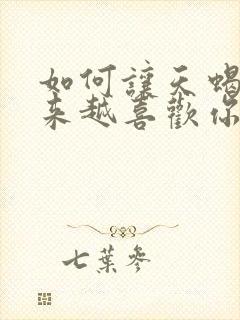 如何讓天蝎
來越喜歡你
七葉參